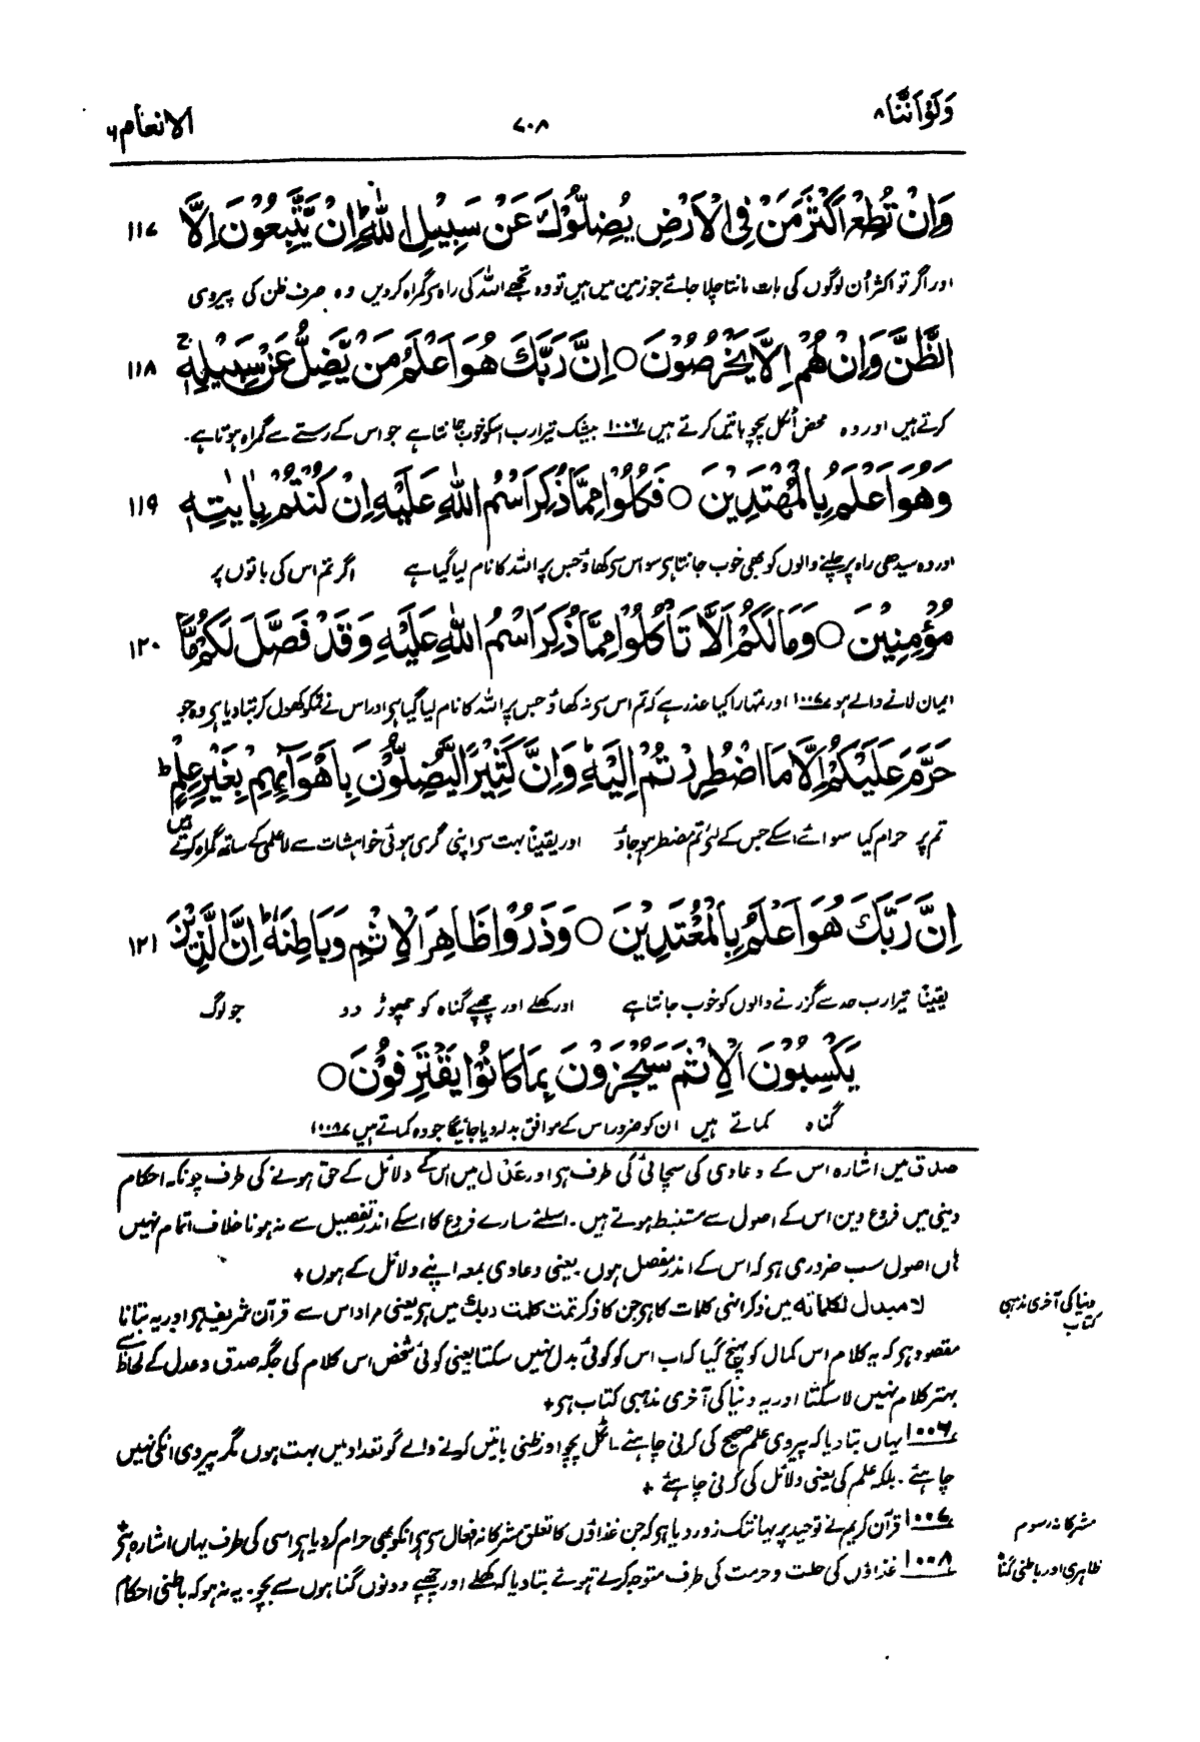 ولواننا ۸
۷۰۸
الانعام ۶
وَاِنْ تُطِعْ اَكْثَرَ مَنْ فِی الْاَرْضِ یُضِلُّوْكَ عَنْ سَبِیْلِ اللّٰهِ ؕ اِنْ یَّتَّبِعُوْنَ اِلَّا ۱۱۷
اور اگر تو اکثر اُن لوگوں کی بات مانتا چلا جائے جو زمین میں ہیں تو وہ تجھے اللہ کی راہ سے گمراہ کردیں وہ صرف ظن کی پیروی
الظَّنَّ وَاِنْ هُمْ اِلَّا یَخْرُصُوْنَ ○ اِنَّ رَبَّكَ هُوَ اَعْلَمُ مَنْ یَّضِلُّ عَنْ سَبِیْلِهٖ ۚ ۱۱۸
کرتے ہیں اور وہ محض اُٹکل پچو باتیں کرتے ہیں ۱۰۰۶ بیشک تیرا رب اسکو خوب جانتا ہے جو اس کے رستے سے گمراہ ہوتا ہے۔
وَهُوَ اَعْلَمُ بِالْمُهْتَدِیْنَ ○ فَكُلُوْا مِمَّا ذُكِرَ اسْمُ اللّٰهِ عَلَیْهِ اِنْ كُنْتُمْ بِاٰیٰتِهٖ ۱۱۹
اور وہ سیدھی راہ پر چلنے والوں کو بھی خوب جانتا ہے سو اس سے کھاؤ جس پر اللہ کا نام لیا گیا ہے اگر تم اس کی باتوں پر
مُؤْمِنِیْنَ ○ وَمَا لَكُمْ اَلَّا تَاْكُلُوْا مِمَّا ذُكِرَ اسْمُ اللّٰهِ عَلَیْهِ وَقَدْ فَصَّلَ لَكُمْ مَّا ۱۲۰
ایمان لانے والے ہو ۱۰۰۷ اور تمہارا کیا عذر ہے کہ تم اس سے نہ کھاؤ جس پر اللہ کا نام لیا گیا ہے اور اس نے تمکو کھول کر بتا دیا ہے وہ جو
حَرَّمَ عَلَیْكُمْ اِلَّا مَا اضْطُرِرْتُمْ اِلَیْهِ ؕ وَاِنَّ كَثِیْرًا لَّیُضِلُّوْنَ بِاَهْوَآئِهِمْ بِغَیْرِ عِلْمٍ ؕ
تم پر حرام کیا سوائے اسکے جس کے لئے تم مضطر ہو جاؤ اور یقیناً بہت سے اپنی گری ہوئی خواہشات سے لاعلمی کے ساتھ گمراہ کرتے ہیں
اِنَّ رَبَّكَ هُوَ اَعْلَمُ بِالْمُعْتَدِیْنَ ○ وَذَرُوْا ظَاهِرَ الْاِثْمِ وَبَاطِنَهٗ ؕ اِنَّ الَّذِیْنَ ۱۲۱
یقیناً تیرا رب حد سے گزرنے والوں کو خوب جانتا ہے اور کھلے اور چھپے گناہ کو چھوڑ دو جو لوگ
یَكْسِبُوْنَ الْاِثْمَ سَیُجْزَوْنَ بِمَا كَانُوْا یَقْتَرِفُوْنَ ○
گناہ کماتے ہیں ان کو ضرور اس کے موافق بدلہ دیا جائیگا جو وہ کماتے ہیں ۱۰۰۸
صدق میں اشارہ اس کے دعاوی کی سچائی کی طرف ہے اور عدل میں اس کے دلائل کے حق ہونے کی طرف چونکہ احکام
دینی میں فروع دین اس کے اصول سے مستنبط ہوتے ہیں۔ اسلئے سارے فروع کا اسکے اندر تفصیل سے نہ ہونا خلاف اتمام نہیں
ہاں اصول سب ضروری ہے کہ اس کے اندر مفصل ہوں۔ یعنی دعاوی بمعہ اپنے دلائل کے ہوں+
لا مبدل لکلماته میں ذکر انہی کلمات کا ہے جن کا ذکر تمت کلمت ربك میں ہے یعنی مراد اس سے قرآن شریف ہے اور یہ بتانا
دنیا کی آخری مذہبی کتاب
مقصود ہے کہ یہ کلام اس کمال کو پہنچ گیا کہ اب اس کو کوئی بدل نہیں سکتا یعنی کوئی شخص اس کلام کی جگہ صدق و عدل کے لحاظ سے
بہتر کلام نہیں لا سکتا اور یہ دنیا کی آخری مذہبی کتاب ہے+
۱۰۰۶ یہاں بتا دیا کہ پیروی علم صحیح کی کرنی چاہئے۔ اٹکل پچو اور ظنی باتیں کرنے والے گو تعداد میں بہت ہوں مگر پیروی انکی نہیں
چاہئے۔ بلکہ علم کی یعنی دلائل کی کرنی چاہئے +
۱۰۰۷ قرآن کریم نے توحید پر یہانتک زور دیا ہے کہ جن غذاؤں کا تعلق مشرکانہ افعال سے ہے انکو بھی حرام کر دیا ہے اسی کی طرف یہاں اشارہ ہے+
مشرکانہ رسوم
۱۰۰۸ غذاؤں کی حلت و حرمت کی طرف متوجہ کرتے ہوئے بتا دیا کہ کھلے اور چھپے دونوں گناہوں سے بچو۔ یہ نہ ہو کہ باطنی احکام
ظاہری اور باطنی گناہ